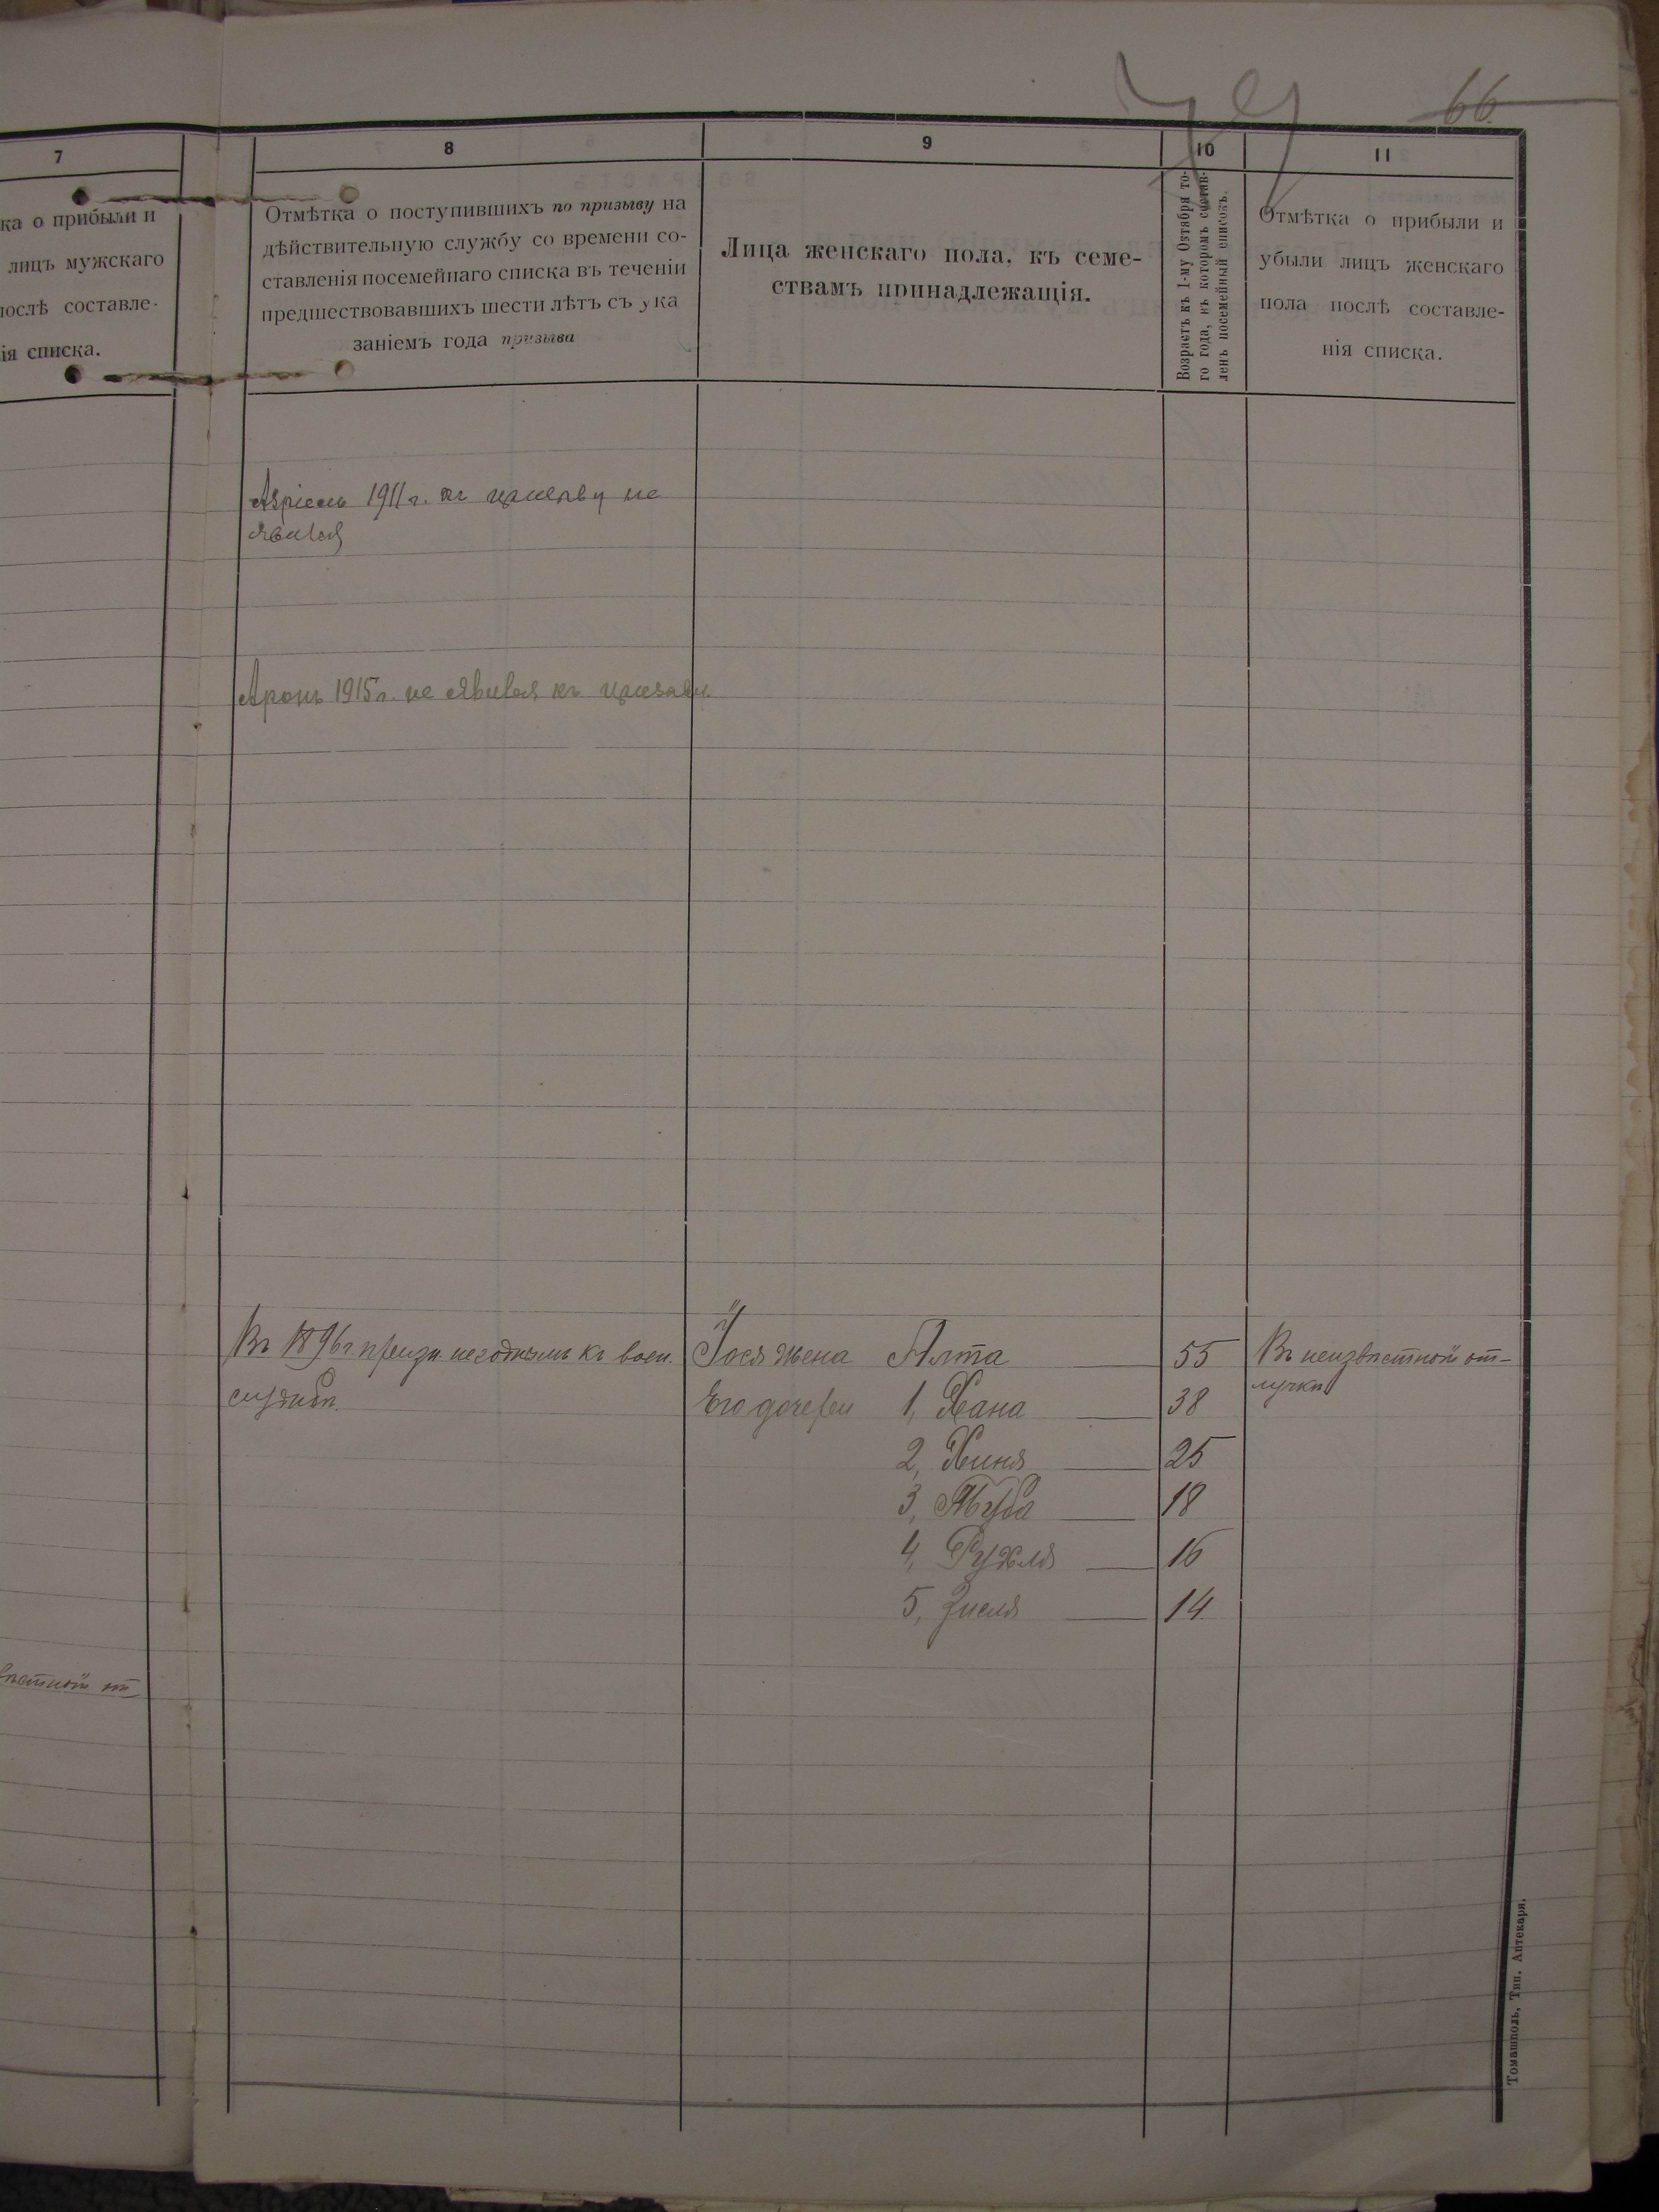 66.
7
ка о прибыли и
лицъ мужскаго
послѣ составле-
ія списка.
8
Отмѣтка о поступившихъ по призыву на
дѣйствительную службу со времени со-
ставленія посемейнаго списка въ теченіи
предшествовавшихъ шести лѣтъ съ ука
заніемъ года призыва
9
Лица женскаго пола, къ семе-
ствамъ принадлежащія.
10
Возрастъ къ 1-му Октября то-
го года, въ которомъ состав-
ленъ посемейный списокъ.
11
Отмѣтка о прибыли и
убыли лицъ женскаго
пола послѣ составле-
нія списка.
1911 г. къ призыву не
явился
Аронъ 1915 г. не явился къ призыву.
Въ 1896 г. призн. негоднымъ къ воен.
службѣ.
жена 55 Въ неизвѣстной от-
лучкѣ
Его дочери 1, Хана 38
2, Хиня 25
3, 18
4, Рухля 16
5, Зисля 14
вѣстной от
Томашполь, Тип. Аптекаря.